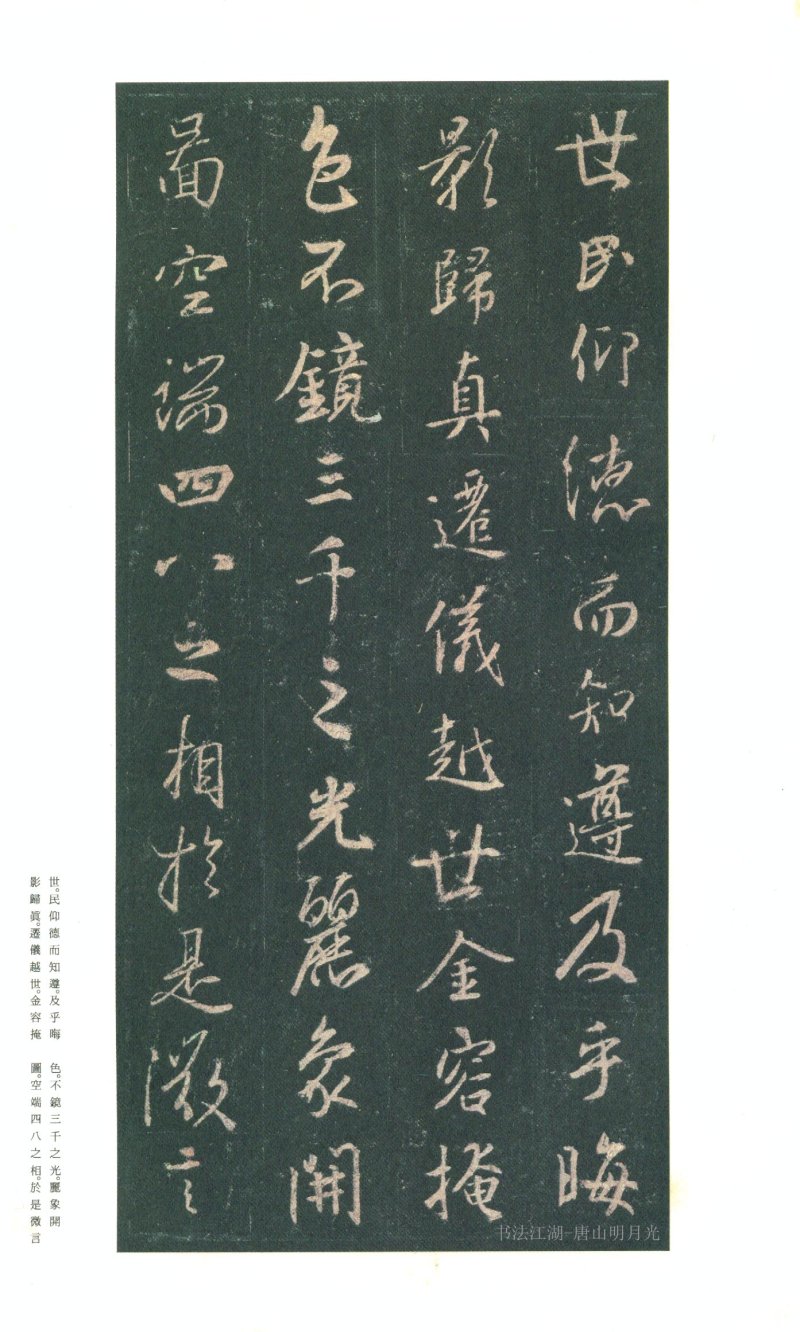 世民仰德而知遵及乎晦
影歸真遷儀越世金容掩
色不鏡三千之光麗象開
啚空端四八之相於是微言
世。民仰德而知遵。及乎晦
影歸眞。遷儀越世。金容掩
色。不鏡三千之光。麗象開
圖。空端四八之相。於是微言
书法江湖-唐山明月光